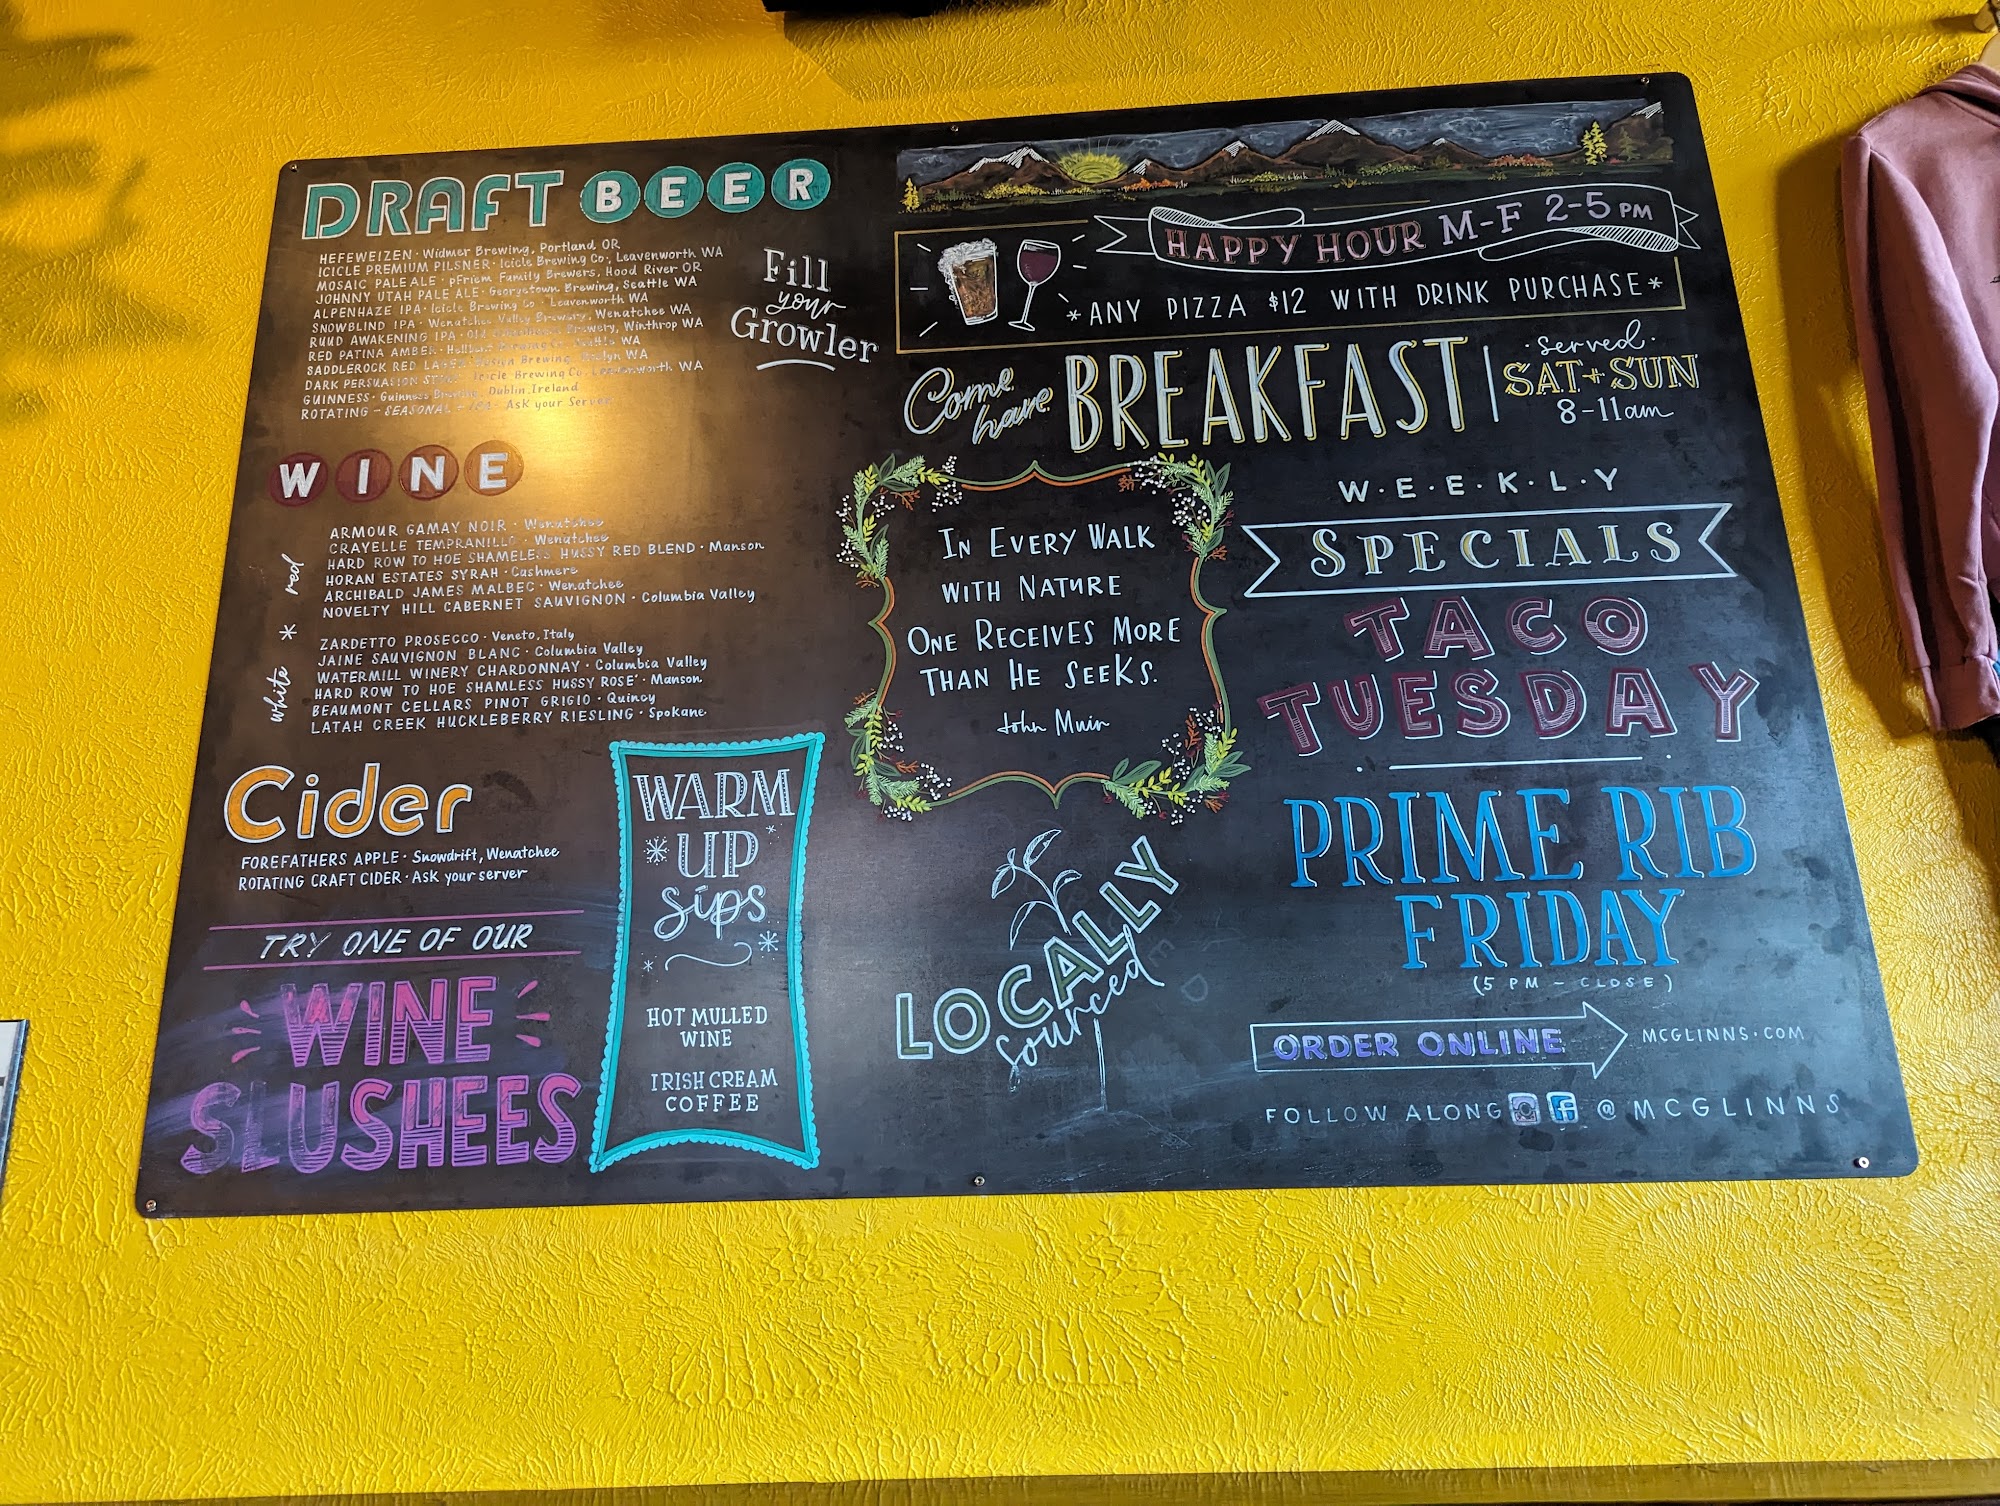 DRAFT BEER
HEFEWEIZEN · Widmer Brewing, Portland OR
ICICLE PREMIUM PILSNER · Icicle Brewing Co., Leavenworth WA
MOSAIC PALE ALE · pFriem Family Brewers, Hood River OR
JOHNNY UTAH PALE ALE · Georgetown Brewing, Seattle WA
ALPENHAZE IPA · Icicle Brewing Co · Leavenworth WA
SNOWBLIND IPA · Wenatchee Valley Brewery, Wenatchee WA
RUUD AWAKENING IPA · Old Schoolhouse Brewery, Winthrop WA
RED PATINA AMBER · Hellbent Brewing Co, Seattle WA
SADDLEROCK RED Brewing, Roslyn WA
DARK PERSUASION Icicle Brewing Co, Leavenworth WA
GUINNESS · Guinness Brewing, Dublin, Ireland
ROTATING - SEASONAL + IPA - Ask your Server
Fill
your
Growler
WINE
red
ARMOUR GAMAY NOIR · Wenatchee
CRAYELLE TEMPRANILLO · Wenatchee
HARD ROW TO HOE SHAMELESS HUSSY RED BLEND · Manson
HORAN ESTATES SYRAH · Cashmere
ARCHIBALD JAMES MALBEC · Wenatchee
NOVELTY HILL CABERNET SAUVIGNON · Columbia Valley
white *
ZARDETTO PROSECCO · Veneto, Italy
JAINE SAUVIGNON BLANC · Columbia Valley
WATERMILL WINERY CHARDONNAY · Columbia Valley
HARD ROW TO HOE SHAMLESS HUSSY ROSE' · Manson
BEAUMONT CELLARS PINOT GRIGIO · Quincy
LATAH CREEK HUCKLEBERRY RIESLING · Spokane
Cider
FOREFATHERS APPLE · Snowdrift, Wenatchee
ROTATING CRAFT CIDER · Ask your server
TRY ONE OF OUR
WINE
SLUSHEES
WARM
UP
sips
HOT MULLED
WINE
IRISH CREAM
COFFEE
HAPPY HOUR M-F 2-5 PM
*ANY PIZZA $12 WITH DRINK PURCHASE*
Come
have
BREAKFAST
· served ·
SAT + SUN
8-11am
IN EVERY WALK
WITH NATURE
ONE RECEIVES MORE
THAN HE SEEKS.
John Muir
LOCALLY
sourced
W·E·E·K·L·Y
SPECIALS
TACO
TUESDAY
PRIME RIB
FRIDAY
(5 PM - CLOSE)
ORDER ONLINE
MCGLINNS·COM
FOLLOW ALONG f @MCGLINNS